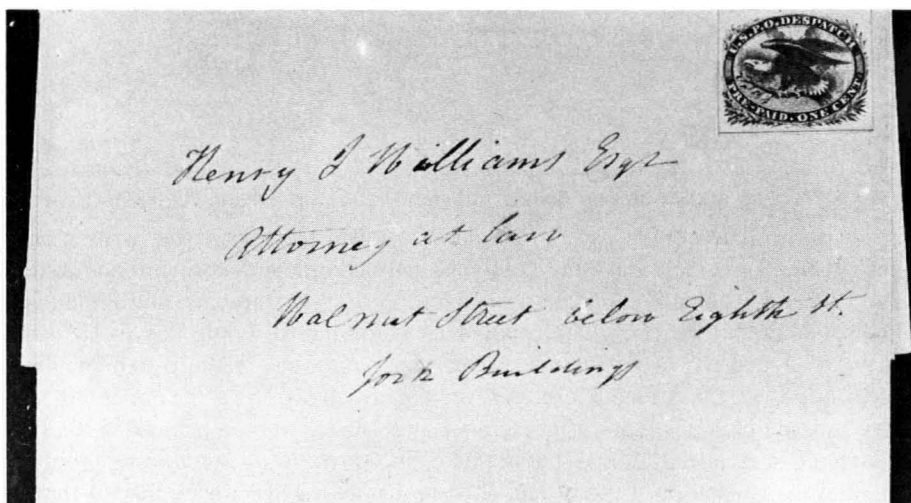 U.S.P.O. DESPATCH
PRE-PAID. ONE CENT.
Henry J Williams Esqr
Attorney at law
Walnut Street below Eighth St.
York Buildings